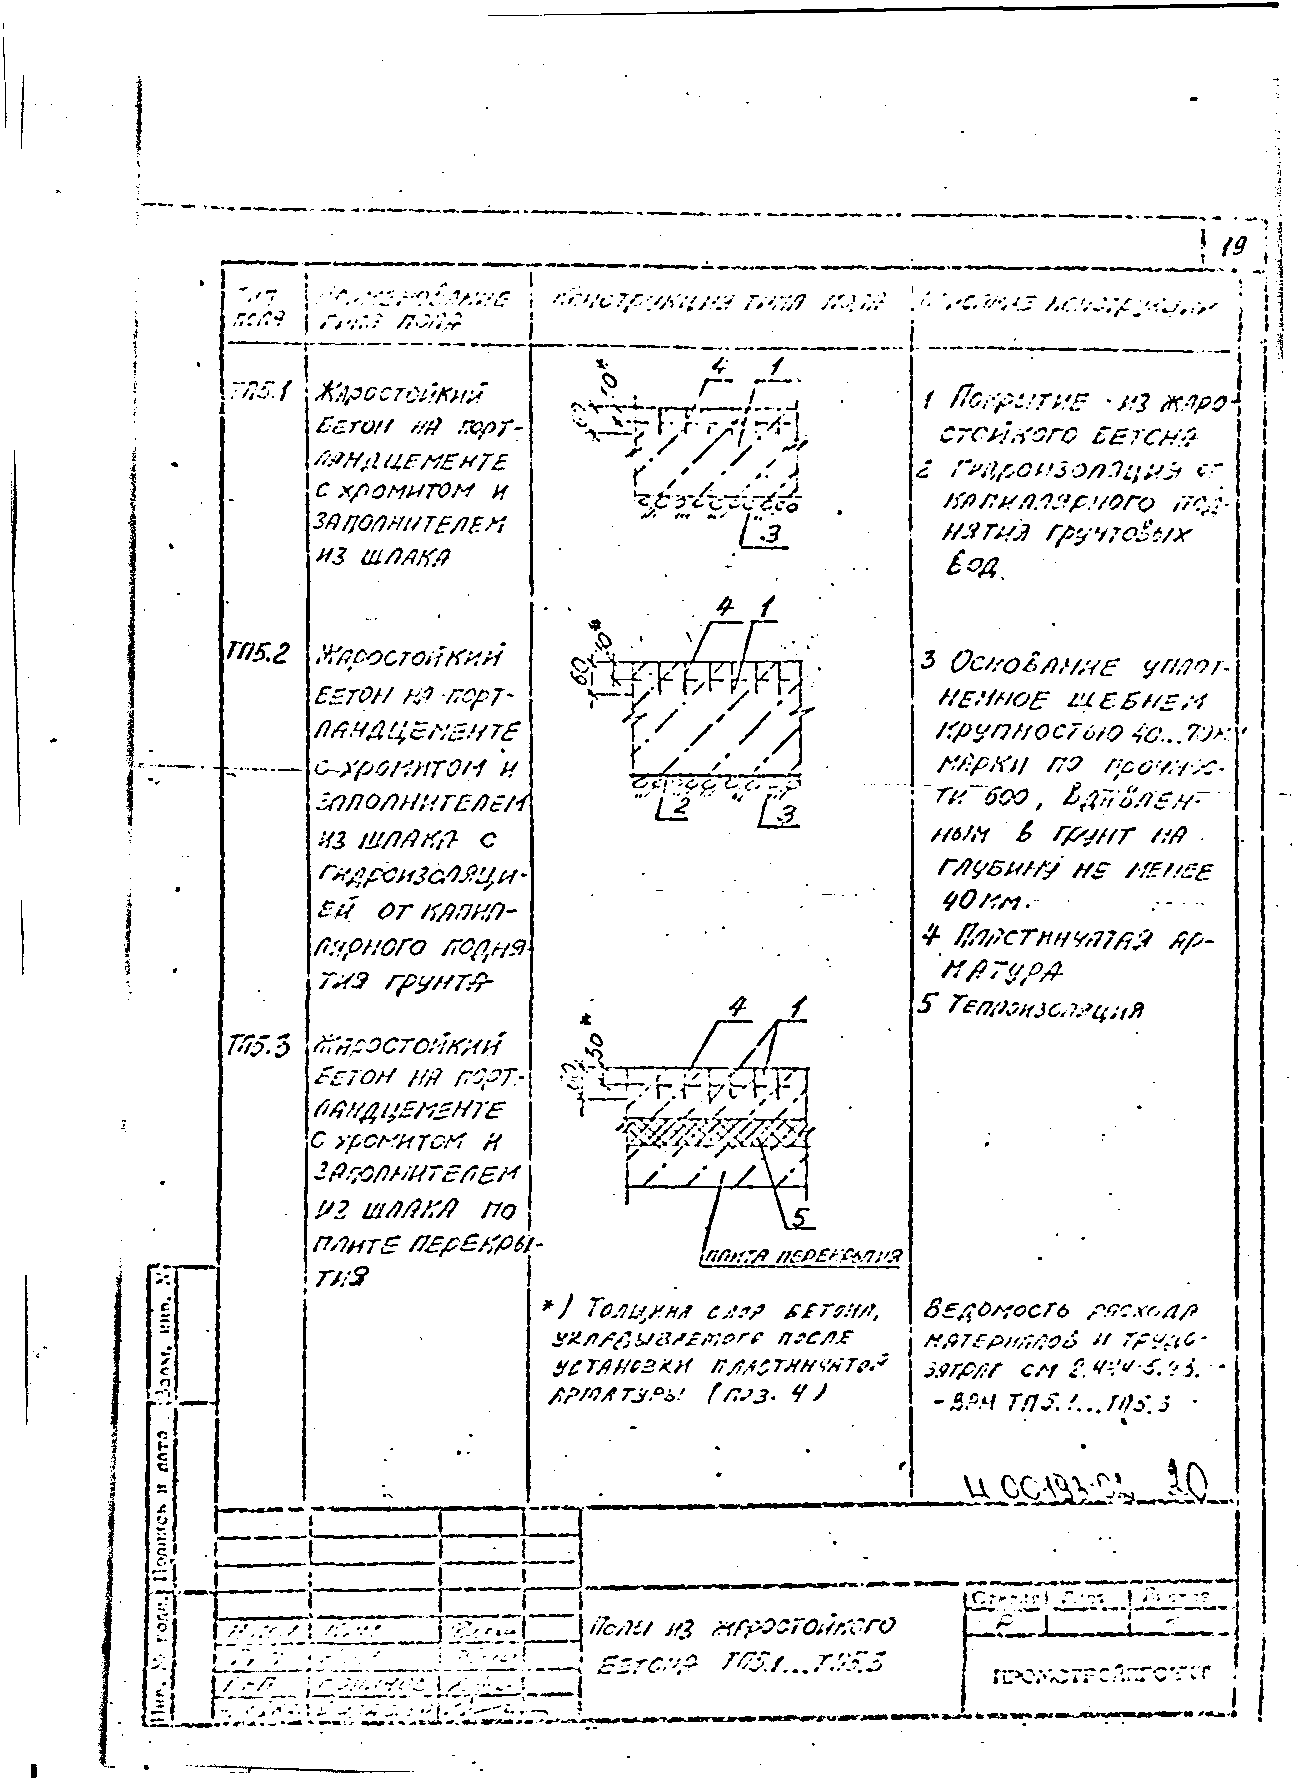 19
Тип пола
Наименование типа пола
Конструкция типа пола
ТП5.1
Жаростойкий
бетон на порт-
ландцементе
с хромитом и
заполнителем
из шлака
4 1
60
10*
3
1 Покрытие - из жаро-
стойкого бетона
2 Гидроизоляция от
капиллярного под-
нятия грунтовых
вод.
ТП5.2
Жаростойкий
бетон на порт-
ландцементе
с хромитом и
заполнителем
из шлака с
гидроизоляци-
ей от капил-
лярного подня
тия грунта
4 1
60
10*
2 3
3 Основание уплот-
ненное щебнем
крупностью 40...70мм
марки по прочнос-
ти 600, вдавлен-
ным в грунт на
глубину не менее
40мм.
4 Пластинчатая ар-
матура
5 Теплоизоляция
ТП5.3
Жаростойкий
бетон на порт-
ландцементе
с хромитом и
заполнителем
из шлака по
плите перекры-
тия
4 1
60
30*
5
плита перекрытия
*) Толщина слоя бетона,
укладываемого после
установки пластинчатой
арматуры (поз. 4)
Ведомость расхода
материалов и трудо-
затрат см 2.444-5.93.
-ВРМ ТП5.1...ТП5.3
Ц00193-02 20
Взам. инв. №
Подпись и дата
Инв. № подл.
Полы из жаростойкого
бетона ТП5.1...ТП5.3
Стадия Лист Листов
Р